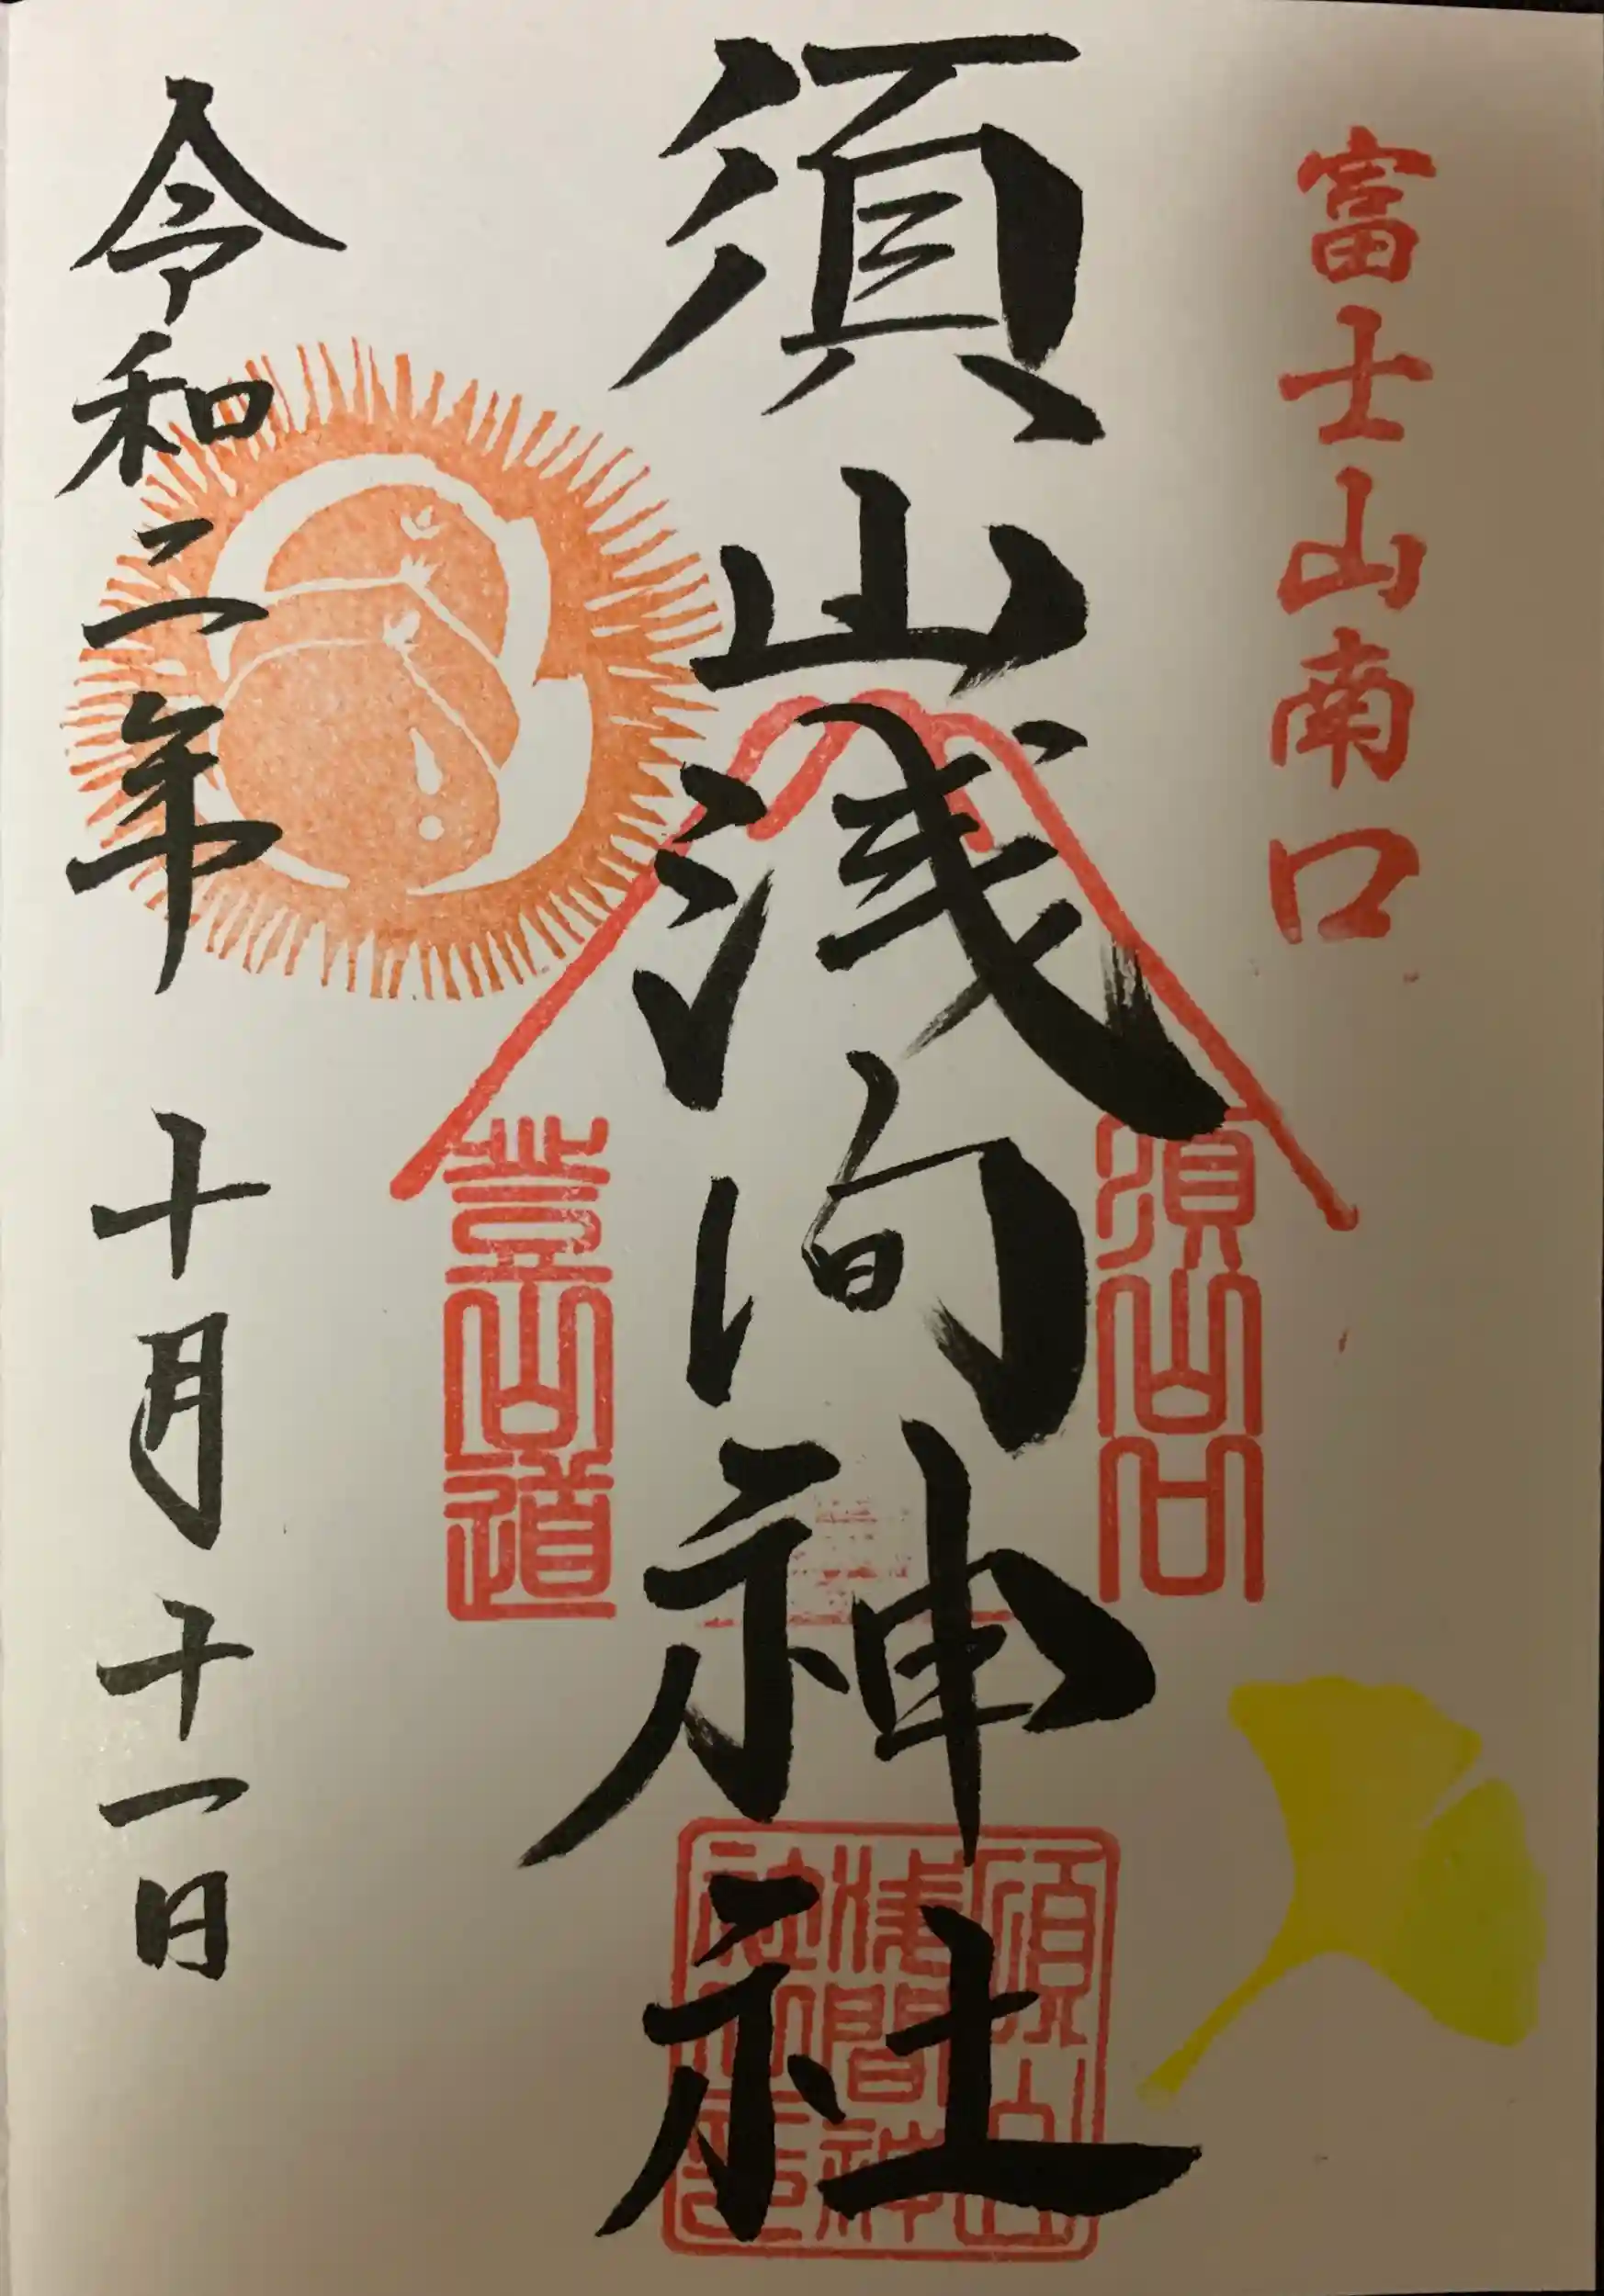 富士山南口
須山口
須山浅间神社
登山道
須山浅間神社
令和二年 十月十一日